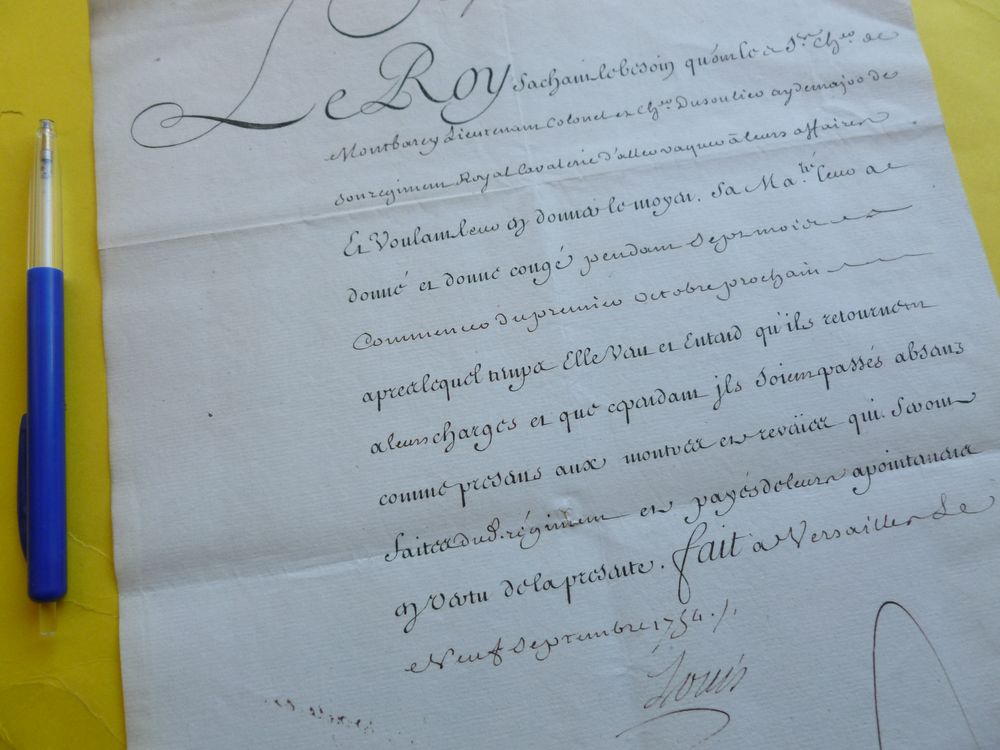 Le Roy sachant le besoin qu'ont le Sr. Cher de
Montbarey Lieutenant Colonel et Cher Dusoulier aydemajor de
son regiment Royal Cavalerie d'aller vaquer à leurs affaires
Et Voulant leur en donner le moyen. Sa Maté. leur a
donné et donne congé pendant Sept mois
Commencer du premier Octobre prochain
apres lequel temps Elle Veut et Entend qu'ils retournent
a leurs charges et que cependant jls Soient passés absans
comme presans aux montres et reveües qui Seront
faites dud. régiment et payés de leurs apointemens
en Vertu de la presente. fait a Versailles Le
Neuf Septembre 1754 ./.
Louis